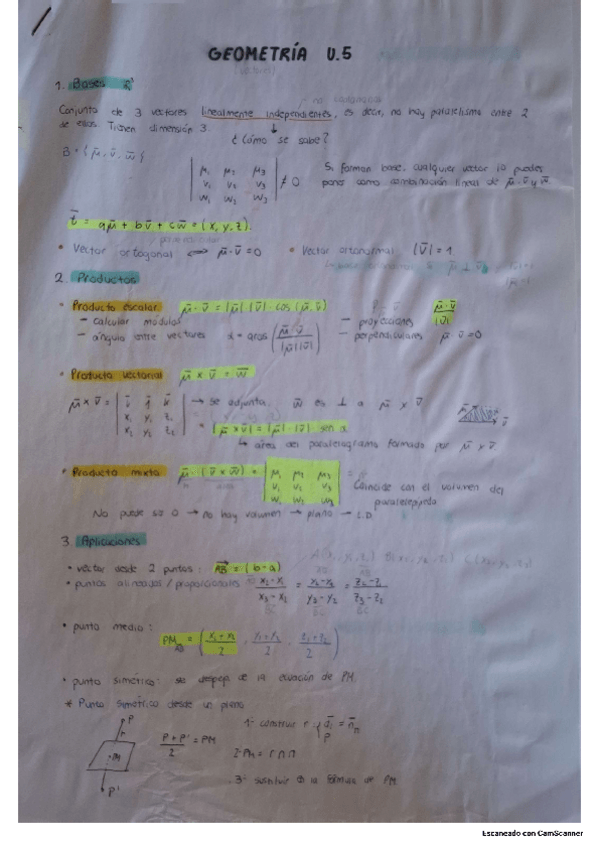 GEOMETRÍA U.5
1. Bases R³
Conjunto de 3 vectores linealmente independientes, es decir, no hay paralelismo entre 2
de ellos. Tienen dimensión 3. ¿Cómo se sabe?
B = { μ̄, v̄, w̄ }
| μ₁ μ₂ μ₃ |
| v₁ v₂ v₃ | ≠ 0
| w₁ w₂ w₃ |
Si forman base, cualquier vector lo puedes
poner como combinación lineal de μ̄, v̄ y w̄.
t̄ = aμ̄ + bv̄ + cw̄ = (x, y, z).
• Vector ortogonal ⟺ μ̄ · v̄ = 0 • Vector ortonormal |v̄| = 1
2. Productos
• Producto escalar μ̄ · v̄ = |μ̄| · |v̄| · cos (μ̄, v̄)
— calcular módulos — proyecciones μ̄ · v̄ / |v̄|
— ángulo entre vectores α = arcos ( μ̄ · v̄ / |μ̄| |v̄| ) — perpendiculares μ̄ · v̄ = 0
• Producto vectorial μ̄ x v̄ = w̄
→ se adjunta. w̄ es ⊥ a μ̄ y v̄
x₁ y₁ z₁
x₂ y₂ z₂
|μ̄ x v̄| = |μ̄| · |v̄| sen α
↳ área del paralelogramo formado por μ̄ y v̄.
• Producto mixto μ̄ · (v̄ x w̄) =
| μ₁ μ₂ μ₃ |
| v₁ v₂ v₃ |
| w₁ w₂ w₃ |
Coincide con el volumen del
paralelepípedo
No puede ser 0 → no hay volumen → plano → L.D.
3. Aplicaciones
• vector desde 2 puntos: AB = (b - a)
• puntos alineados / proporcionales
• punto medio:
PM AB = ( x₁ + x₂ / 2 , y₁ + y₂ / 2 , z₁ + z₂ / 2 )
• punto simétrico: se despeja de la ecuación de PM.
* Punto simétrico desde un plano
P
r
M
P'
P + P' / 2 = PM
1- construir r
P
2- PM = r ∩ π
3- sustituir en la fórmula de PM
Escaneado con CamScanner